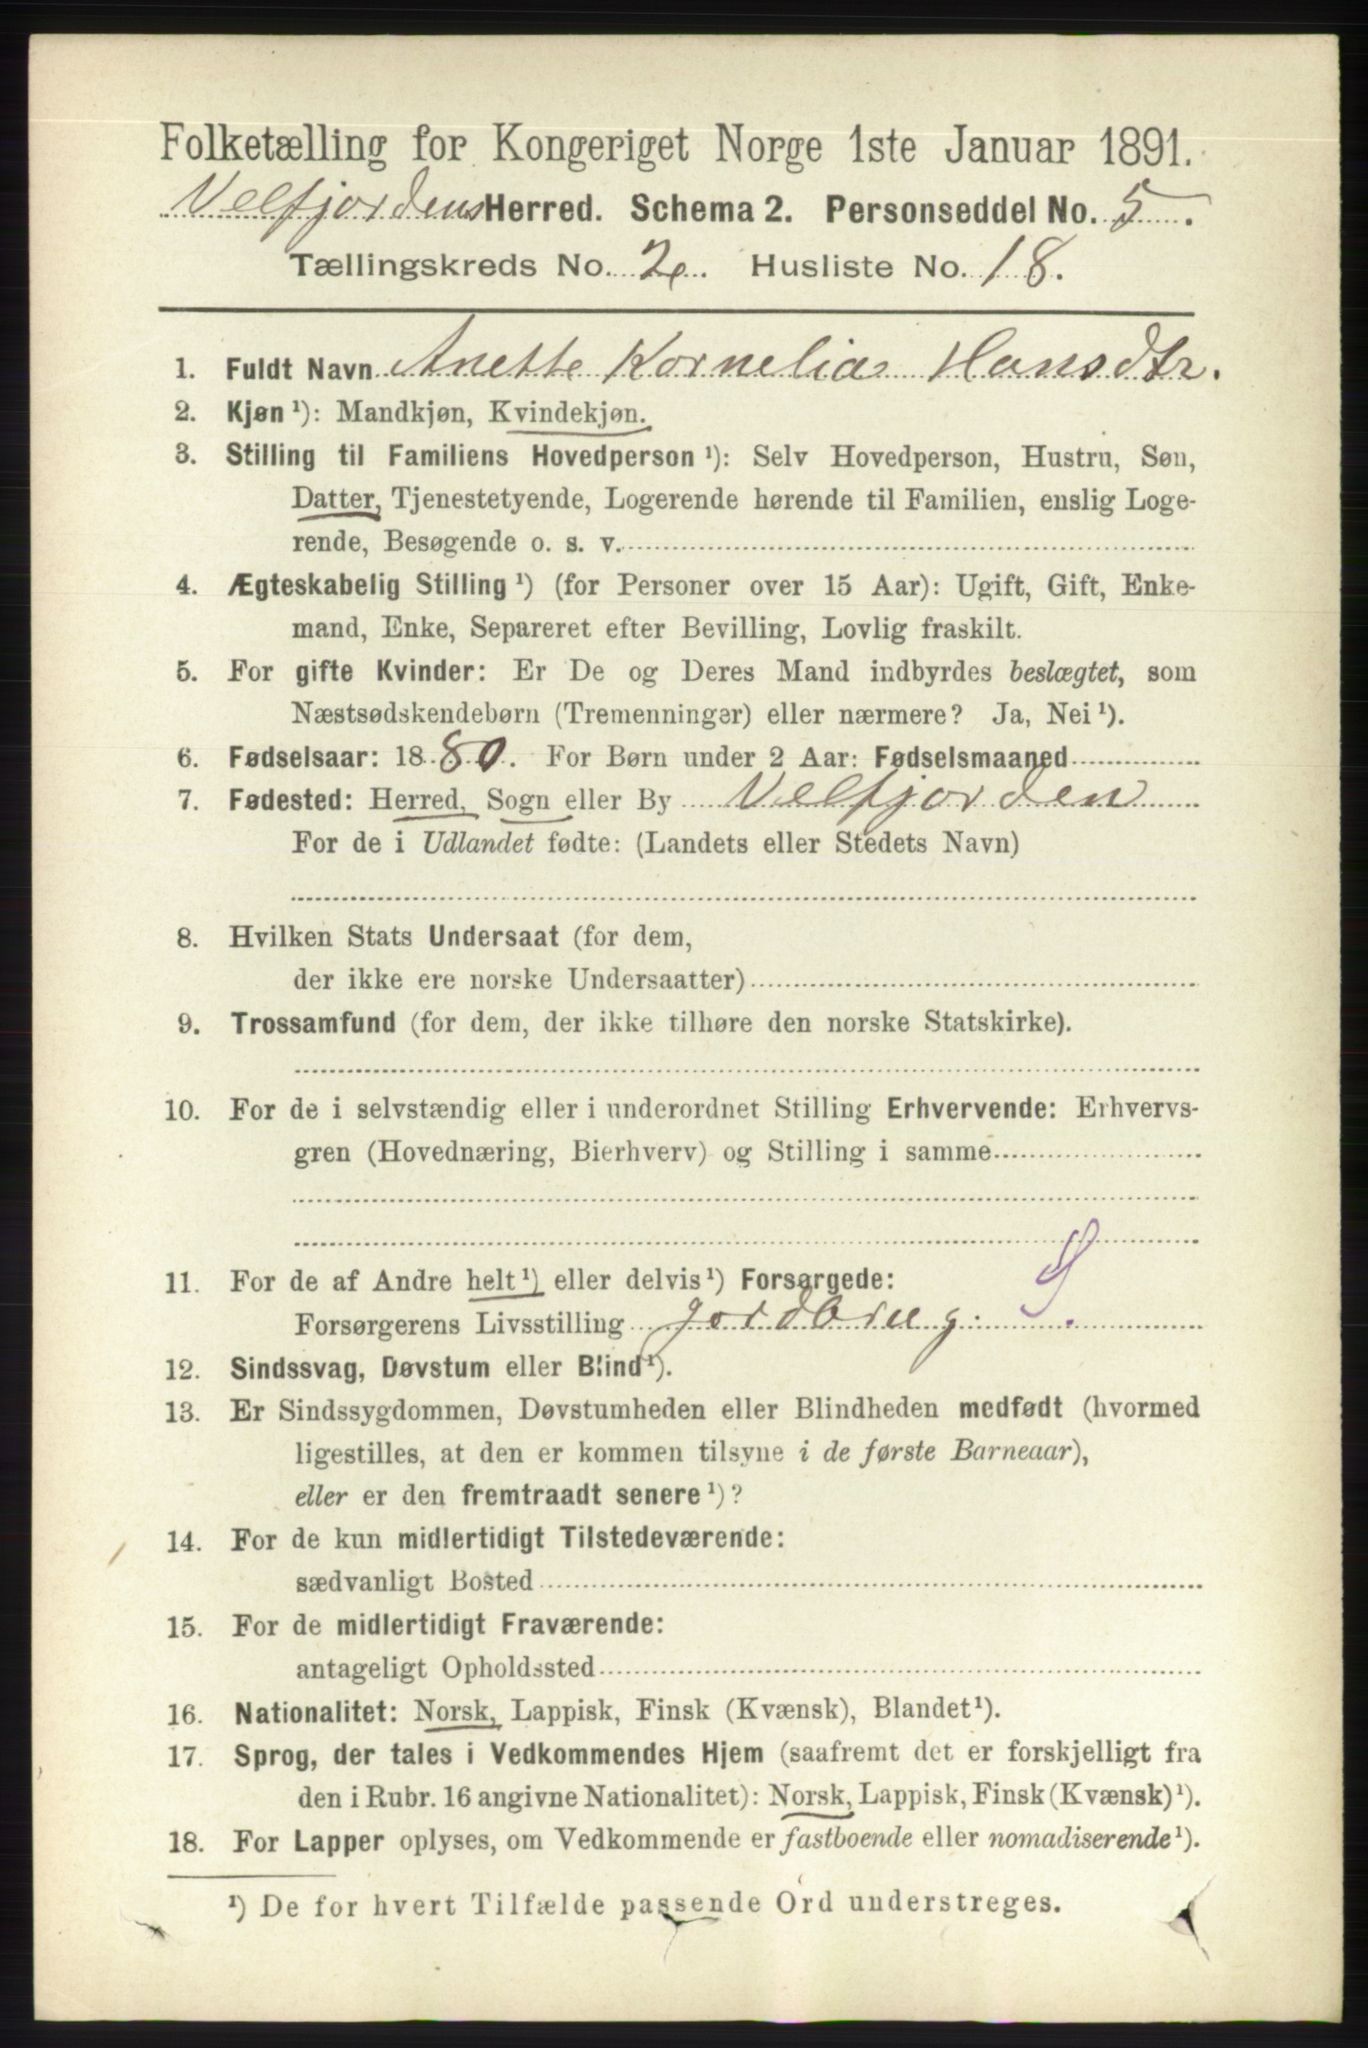 Folketælling for Kongeriget Norge 1ste Januar 1891.
Velfjordens Herred. Schema 2. Personseddel No. 5.
Tællingskreds No. 2. Husliste No. 18.
1. Fuldt Navn Anette Kornelia Hansdtr.
2. Kjøn ¹): Mandkjøn, Kvindekjøn.
3. Stilling til Familiens Hovedperson ¹): Selv Hovedperson, Hustru, Søn,
Datter, Tjenestetyende, Logerende hørende til Familien, enslig Loge-
rende, Besøgende o. s. v.
4. Ægteskabelig Stilling ¹) (for Personer over 15 Aar): Ugift, Gift, Enke-
mand, Enke, Separeret efter Bevilling, Lovlig fraskilt.
5. For gifte Kvinder: Er De og Deres Mand indbyrdes beslægtet, som
Næstsødskendebørn (Tremenninger) eller nærmere? Ja, Nei ¹).
6. Fødselsaar: 1880. For Børn under 2 Aar: Fødselsmaaned
7. Fødested: Herred, Sogn eller By Velfjorden
For de i Udlandet fødte: (Landets eller Stedets Navn)
8. Hvilken Stats Undersaat (for dem,
der ikke ere norske Undersaatter)
9. Trossamfund (for dem, der ikke tilhøre den norske Statskirke).
10. For de i selvstændig eller i underordnet Stilling Erhvervende: Erhvervs-
gren (Hovednæring, Bierhverv) og Stilling i samme
11. For de af Andre helt ¹) eller delvis ¹) Forsørgede:
Forsørgerens Livsstilling jordbrug. S.
12. Sindssvag, Døvstum eller Blind ¹).
13. Er Sindssygdommen, Døvstumheden eller Blindheden medfødt (hvormed
ligestilles, at den er kommen tilsyne i de første Barneaar),
eller er den fremtraadt senere ¹)?
14. For de kun midlertidigt Tilstedeværende:
sædvanligt Bosted
15. For de midlertidigt Fraværende:
antageligt Opholdssted
16. Nationalitet: Norsk, Lappisk, Finsk (Kvænsk), Blandet ¹).
17. Sprog, der tales i Vedkommendes Hjem (saafremt det er forskjelligt fra
den i Rubr. 16 angivne Nationalitet): Norsk, Lappisk, Finsk (Kvænsk) ¹).
18. For Lapper oplyses, om Vedkommende er fastboende eller nomadiserende ¹).
¹) De for hvert Tilfælde passende Ord understreges.